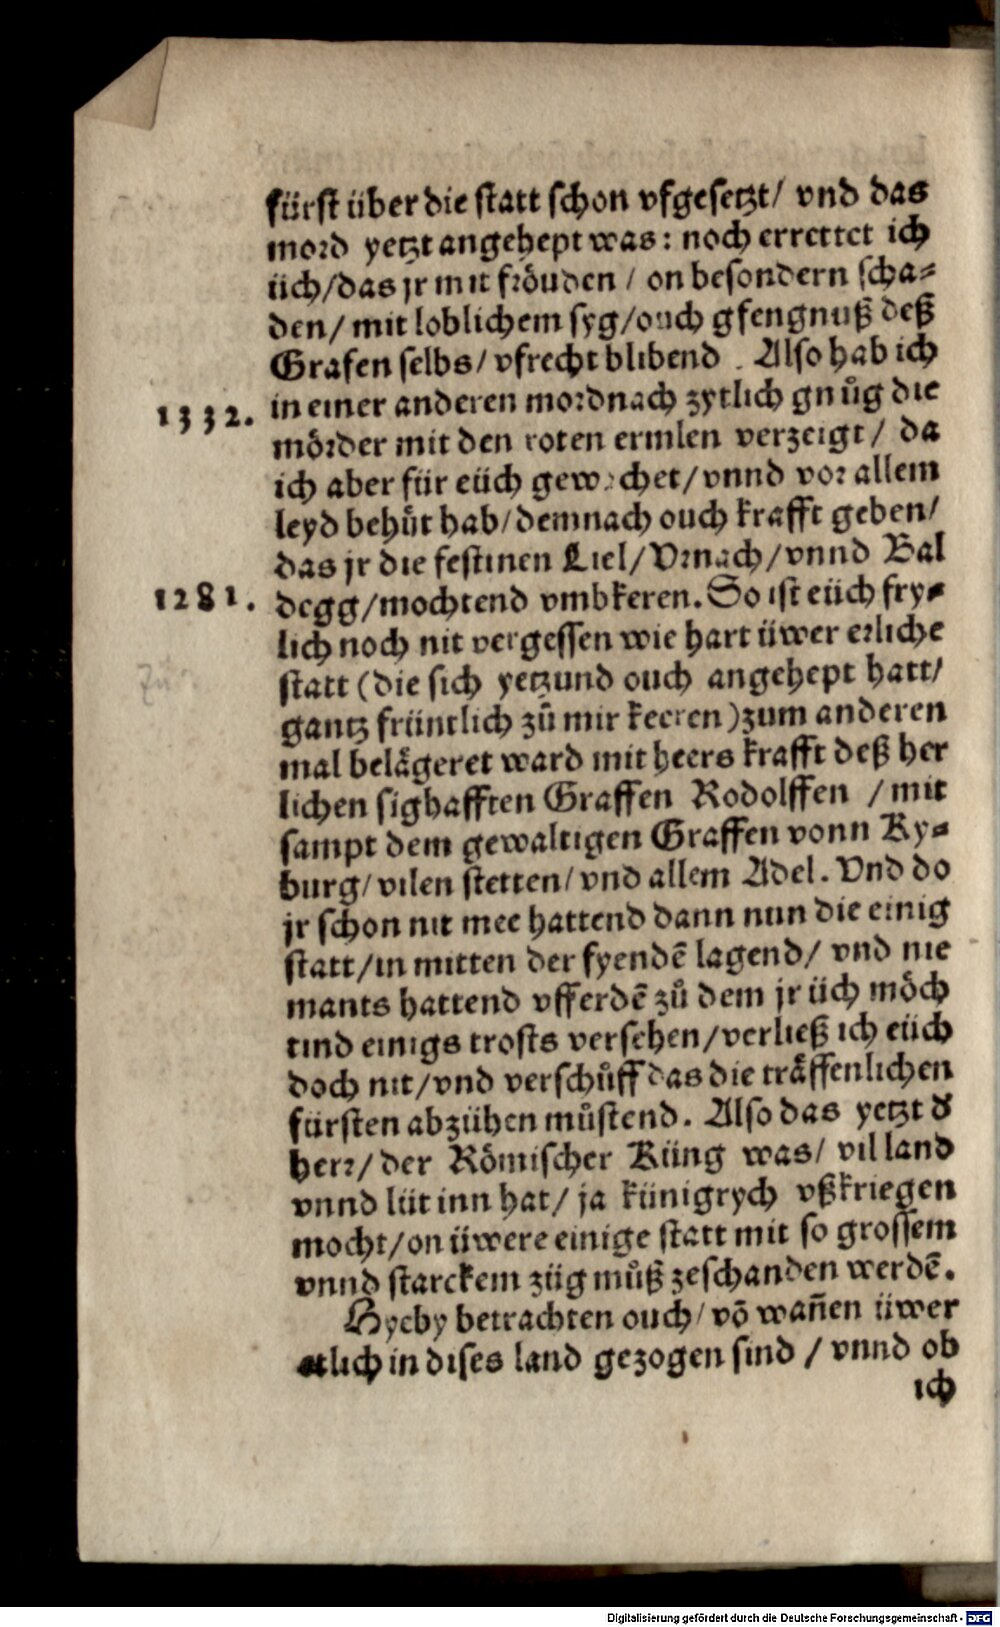 fürst über die statt schon vfgesetzt/ vnd das
mord yetzt angehept was: noch errettet ich
üch/das jr mit fröuden / on besondern scha⸗
den/ mit loblichem syg/ouch gfengnuß deß
Grafen selbs/ vfrecht blibend . Also hab ich
1332. in einer anderen mordnach zytlich gnůg die
mörder mit den roten ermlen verzeigt/ da
ich aber für eüch gewachet/vnnd vor allem
leyd behüt hab/demnach ouch krafft geben/
das jr die festinen Liel/Vrnach/vnnd Bal
1281. degg/mochtend vmbkeren. So ist eüch fry⸗
lich noch nit vergessen wie hart üwer erliche
statt (die sich yetzund ouch angehept hatt/
gantz früntlich zů mir keeren)zum anderen
mal belägeret ward mit heers krafft deß her
lichen sighafften Graffen Rodolffen /mit
sampt dem gewaltigen Graffen vonn Ky⸗
burg/vilen stetten/vnd allem Adel. Vnd do
jr schon nit mee hattend dann nun die einig
statt/in mitten der fyendē lagend/ vnd nie
mants hattend vfferdē zů dem jr üch möch
tind einigs trosts versehen/verließ ich eüch
doch nit/vnd verschůff das die träffenlichen
fürsten abzühen můstend. Also das yetzt d̕
herr/der Römischer Küng was/ vil land
vnnd lüt inn hat/ ja künigrych vßkriegen
mocht/on üwere einige statt mit so grossem
vnnd starckem züg můß zeschanden werdē.
Hyeby betrachten ouch/ võ wañen üwer
etlich in dises land gezogen sind / vnnd ob
ich
Digitalisierung gefördert durch die Deutsche Forschungsgemeinschaft - DFG